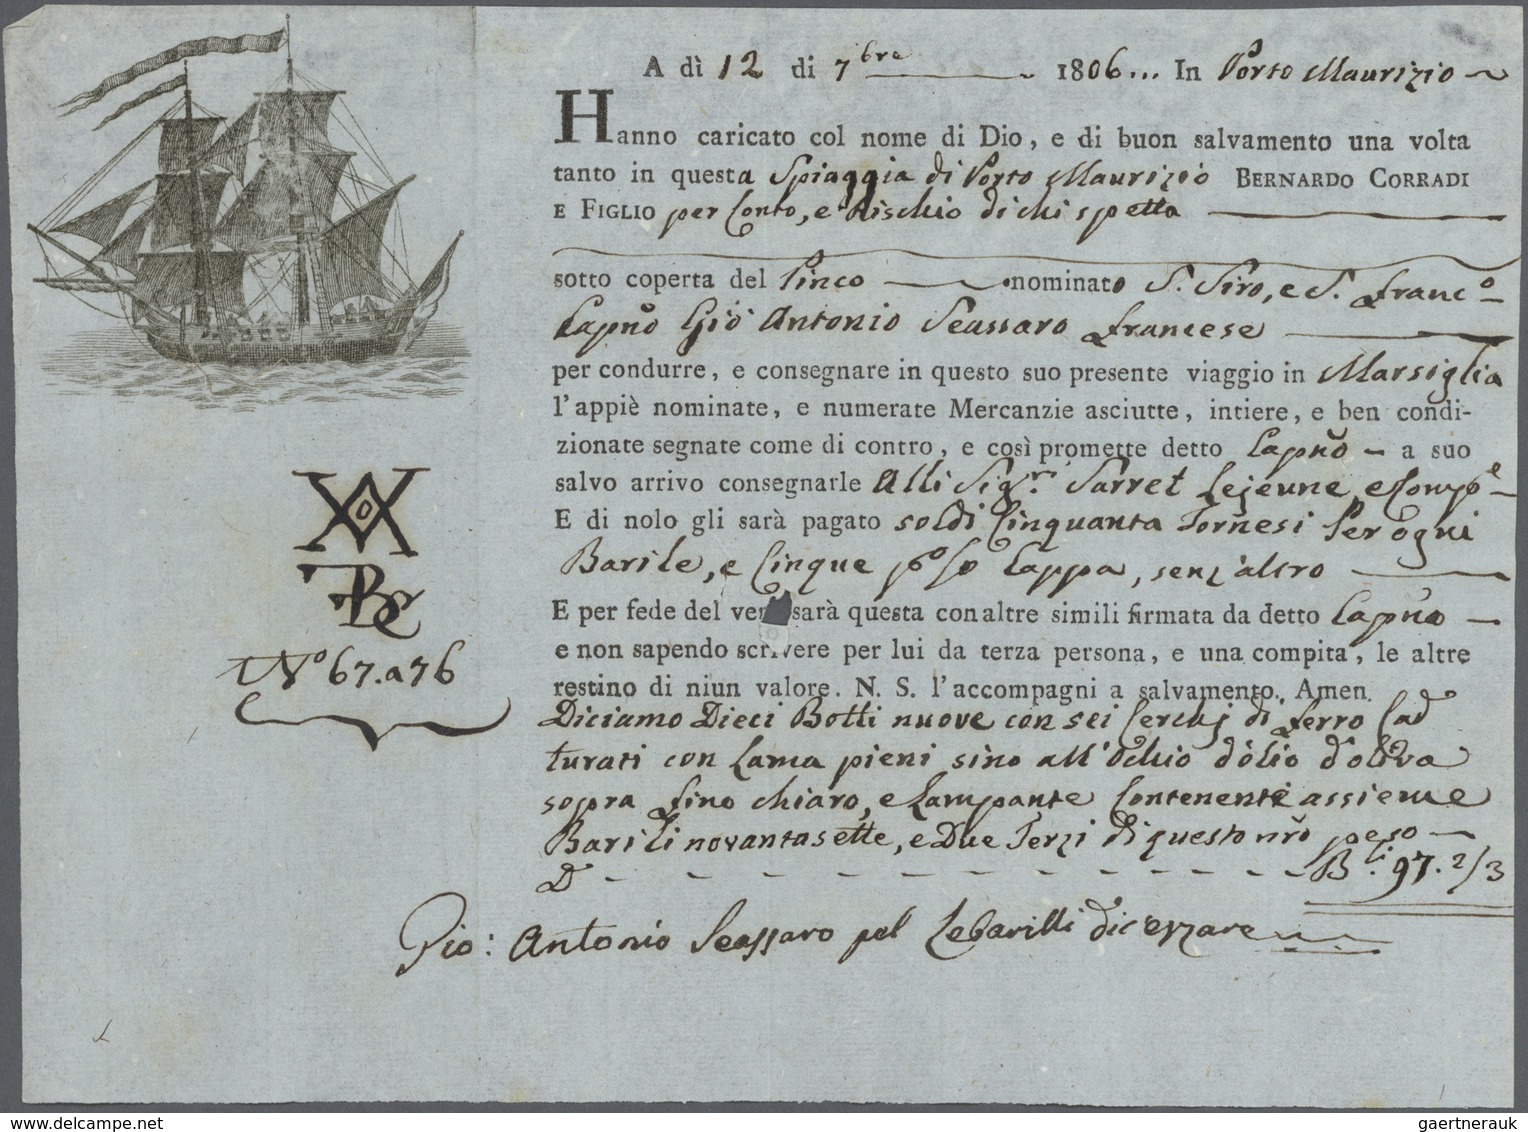 A dì 12 di 7bre 1806... In Porto Maurizio
Hanno caricato col nome di Dio, e di buon salvamento una volta
tanto in questa Spiaggia di Porto Maurizio BERNARDO CORRADI
E FIGLIO per Conto, e Rischio di chi spetta
sotto coperta del Pinco nominato S. Siro, e S. Franc.o
Capño Gio Antonio Seassaro francese
per condurre, e consegnare in questo suo presente viaggio in Marsiglia
l'appiè nominate, e numerate Mercanzie asciutte, intiere, e ben condi-
zionate segnate come di contro, e così promette detto Capño a suo
salvo arrivo consegnarle Alli Sig.ri Sarret Lejeune, e Comp.e
E di nolo gli sarà pagato soldi Cinquanta Tornesi Per ogni
Barile, e Cinque p%o Cappa, senz'altro
E per fede del sarà questa con altre simili firmata da detto Capño
e non sapendo scrivere per lui da terza persona, e una compita, le altre
restino di niun valore. N. S. l'accompagni a salvamento. Amen.
Diciamo Dieci Botti nuove con sei Cerchj di ferro Cad
turati con Lama pieni sino all'Ochio d'olio d'oliva
sopra fino chiaro, e Lampante Contenenti assieme
Barili novantasette, e Due Terzi di questo nr̃o peso
D - - - B.li 97. 2/3
Gio: Antonio Seassaro
N.o 67. a 76
gaertnerauk